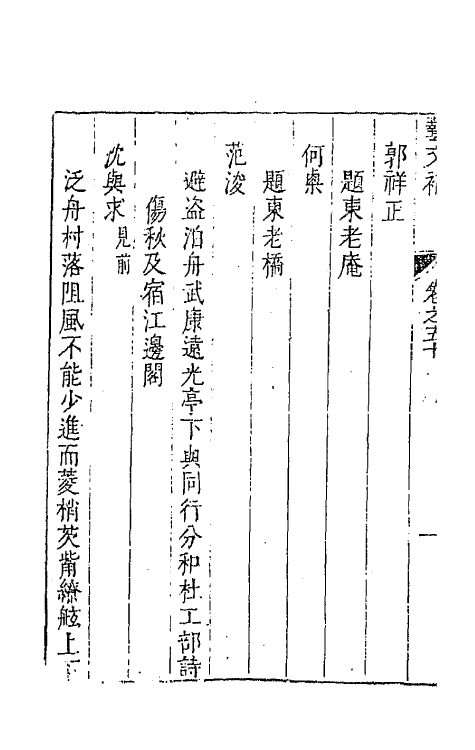 藝文補　卷之五十　一
郭祥正
題東老庵
何㮚
題東老橋
范浚
避盜泊舟武康遠光亭下與同行分和杜工部詩
傷秋及宿江邊閣
沈與求見前
泛舟村落阻風不能少進而菱梢芡觜繚舷上下